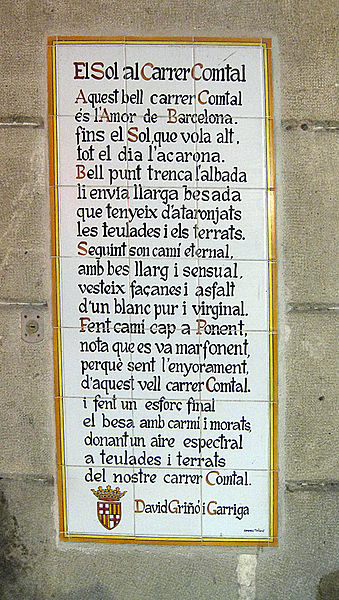 El Sol al Carrer Comtal
Aquest bell carrer Comtal
és l'Amor de Barcelona.
fins el Sol, que vola alt,
tot el dia l'acarona.
Bell punt trenca l'albada
li envia llarga besada
que tenyeix d'ataronjats
les teulades i els terrats.
Seguint son camí eternal,
amb bes llarg i sensual,
vesteix façanes i asfalt
d'un blanc pur i virginal.
Fent camí cap a Ponent,
nota que es va marfonent,
perquè sent l'enyorament,
d'aquest vell carrer Comtal.
i fent un esforç final
el besa amb carmí i morats,
donant un aire espectral
a teulades i terrats
del nostre carrer Comtal.
David Griñó i Garriga